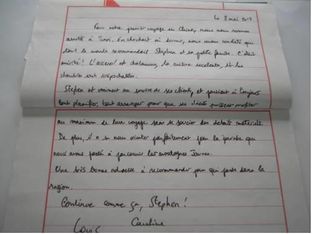 Le 8 mai 2017
Pour notre grand voyage en Chine, nous nous sommes
arrêté à En cherchant à dormir, nous nous rendit que
tout le monde recommandait Stephen et sa petite famille. C'était
mérité ! L'accueil est chaleureux, la cuisine excellente, et les
chambres sont irréprochables.
Stephen est vraiment au service de ses clients, et parvient à toujours
tout planifier, tout arranger pour que ses clients puissent profiter
au maximum de leur voyage sans se soucier des détails matériels.
De plus, il a su nous orienter parfaitement pour la période que
nous avons passé à parcourir les montagnes Jaunes.
Une très bonne adresse à recommander pour qui passe dans la
région.
Continue comme ça, Stephen !
Caroline
Louis